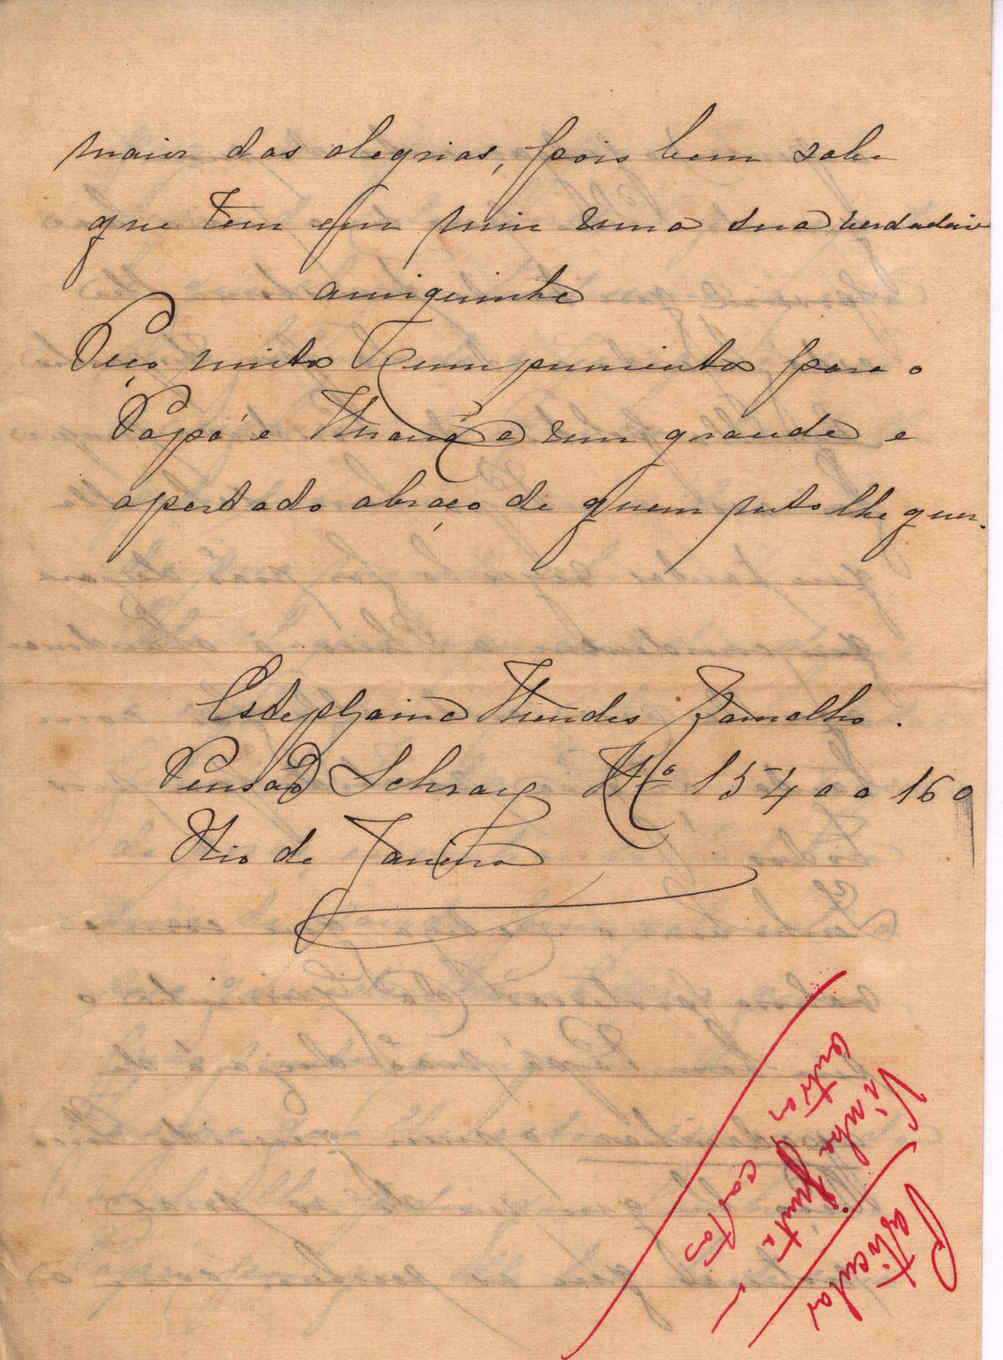 maior das alegrias, pois bem sabe
que tem em mim uma sua verdadeira
amiguinha
Peço muitos Cumprimentos para o
Papá e Mamã e um grande e
apertado abraço de quem muito lhe quer.
Estephania Mendes Ramalho.
Pensão Schray Nº 154 a a 160
Rio de Janeiro
Vinha junto
outras cartas
Particular